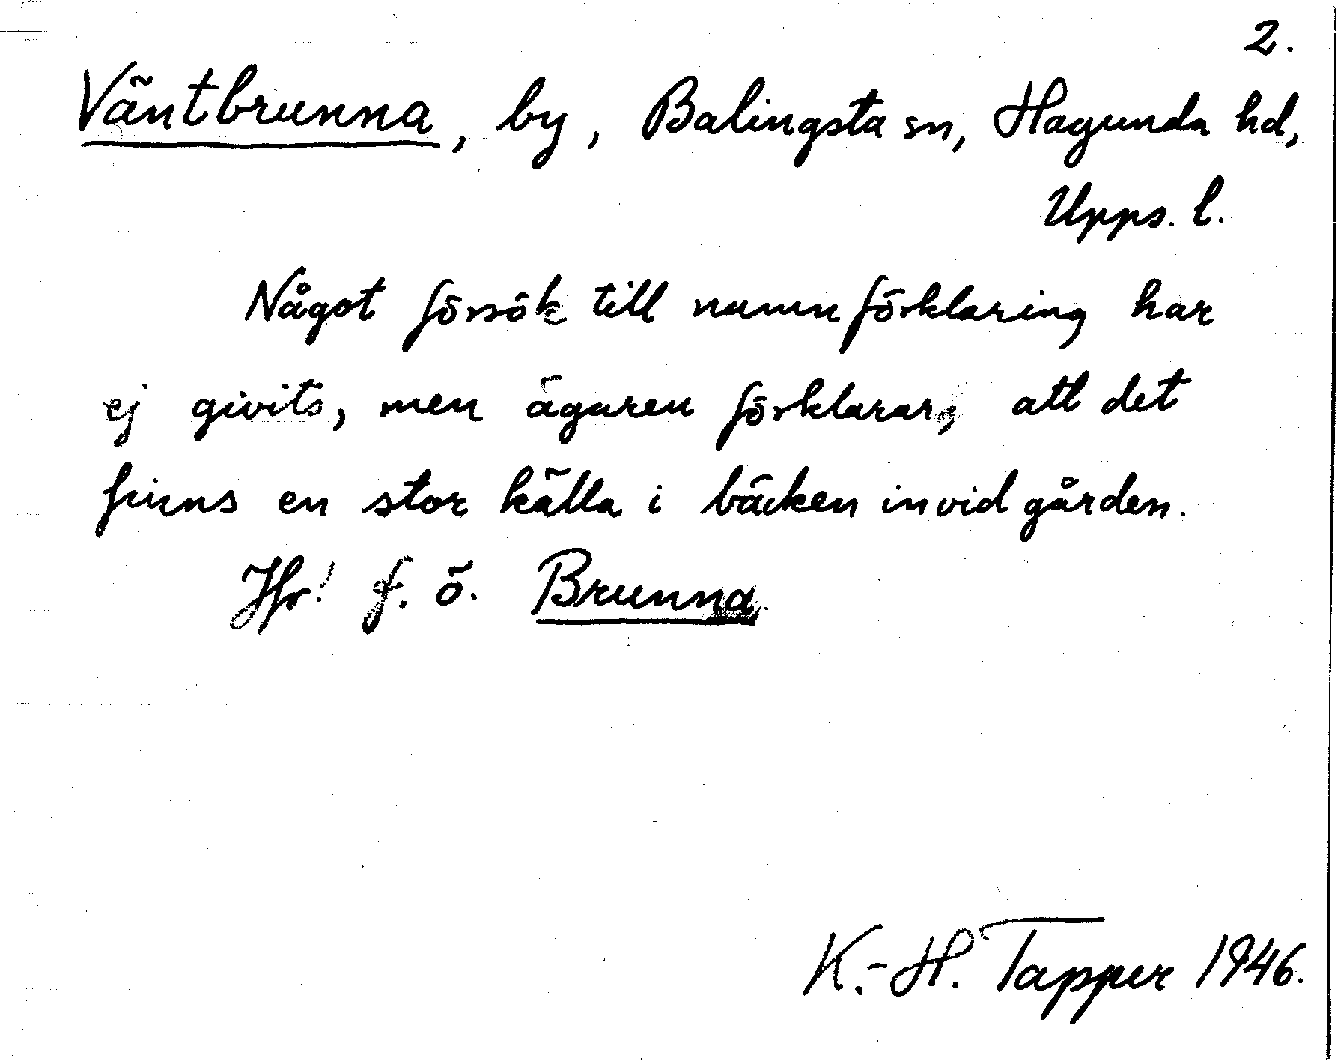 2.
Väntbrunna, by, Balingsta sn, Hagunda hd,
Upps. l.
Något försök till namnförklaring har
ej givits, men ägaren förklarar, att det
finns en stor källa i bäcken invid gården.
Jfr! f. ö. Brunna.
K.-H. Tapper 1946.